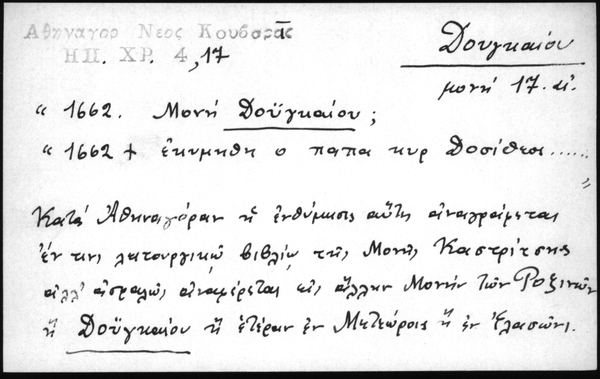 Αθηναγορ Νεος Κουβαρᾶς
ΗΠ. ΧΡ. 4,17
Δουγκαίου
μονή 17. αἰ.
" 1662. Μονή Δοϋγκαίου;
" 1662 + ἐκυμηθη ο παπα κυρ Δοσίθεοι......
"
Κατά Ἀθηναγόραν ἡ ἐνθύμησις αὕτη ἀναγράφεται
ἔν τινι λειτουργικῷ βιβλίῳ τῆς Μονῆς Καστρίτσης
ἀλλ' ἀσφαλῶς ἀναφέρεται εἰς ἄλλην Μονήν τῶν Ροξινῶν
ἤ Δοϋγκαίου ἤ ἑτέραν ἐν Μετεώροις ἤ ἐν Ἐλασσῶνι.